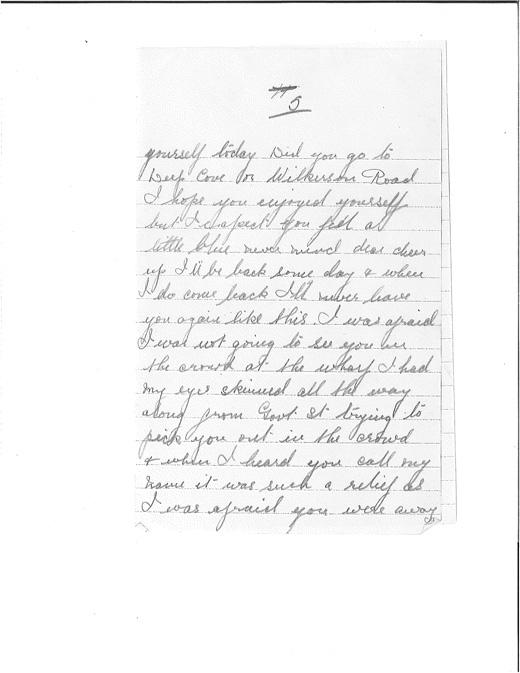 5
yourself today Did you go to
Deep Cove or Wilkerson Road
I hope you enjoyed yourself
but I expect you felt a
little blue never mind dear cheer
up I'll be back some day & when
I do come back I'll never leave
you again like this. I was afraid
I was not going to see you in
the crowd at the wharf I had
my eyes skinned all the way
along from Govt St trying to
pick you out in the crowd
& when I heard you call my
name it was such a relief as
I was afraid you were away